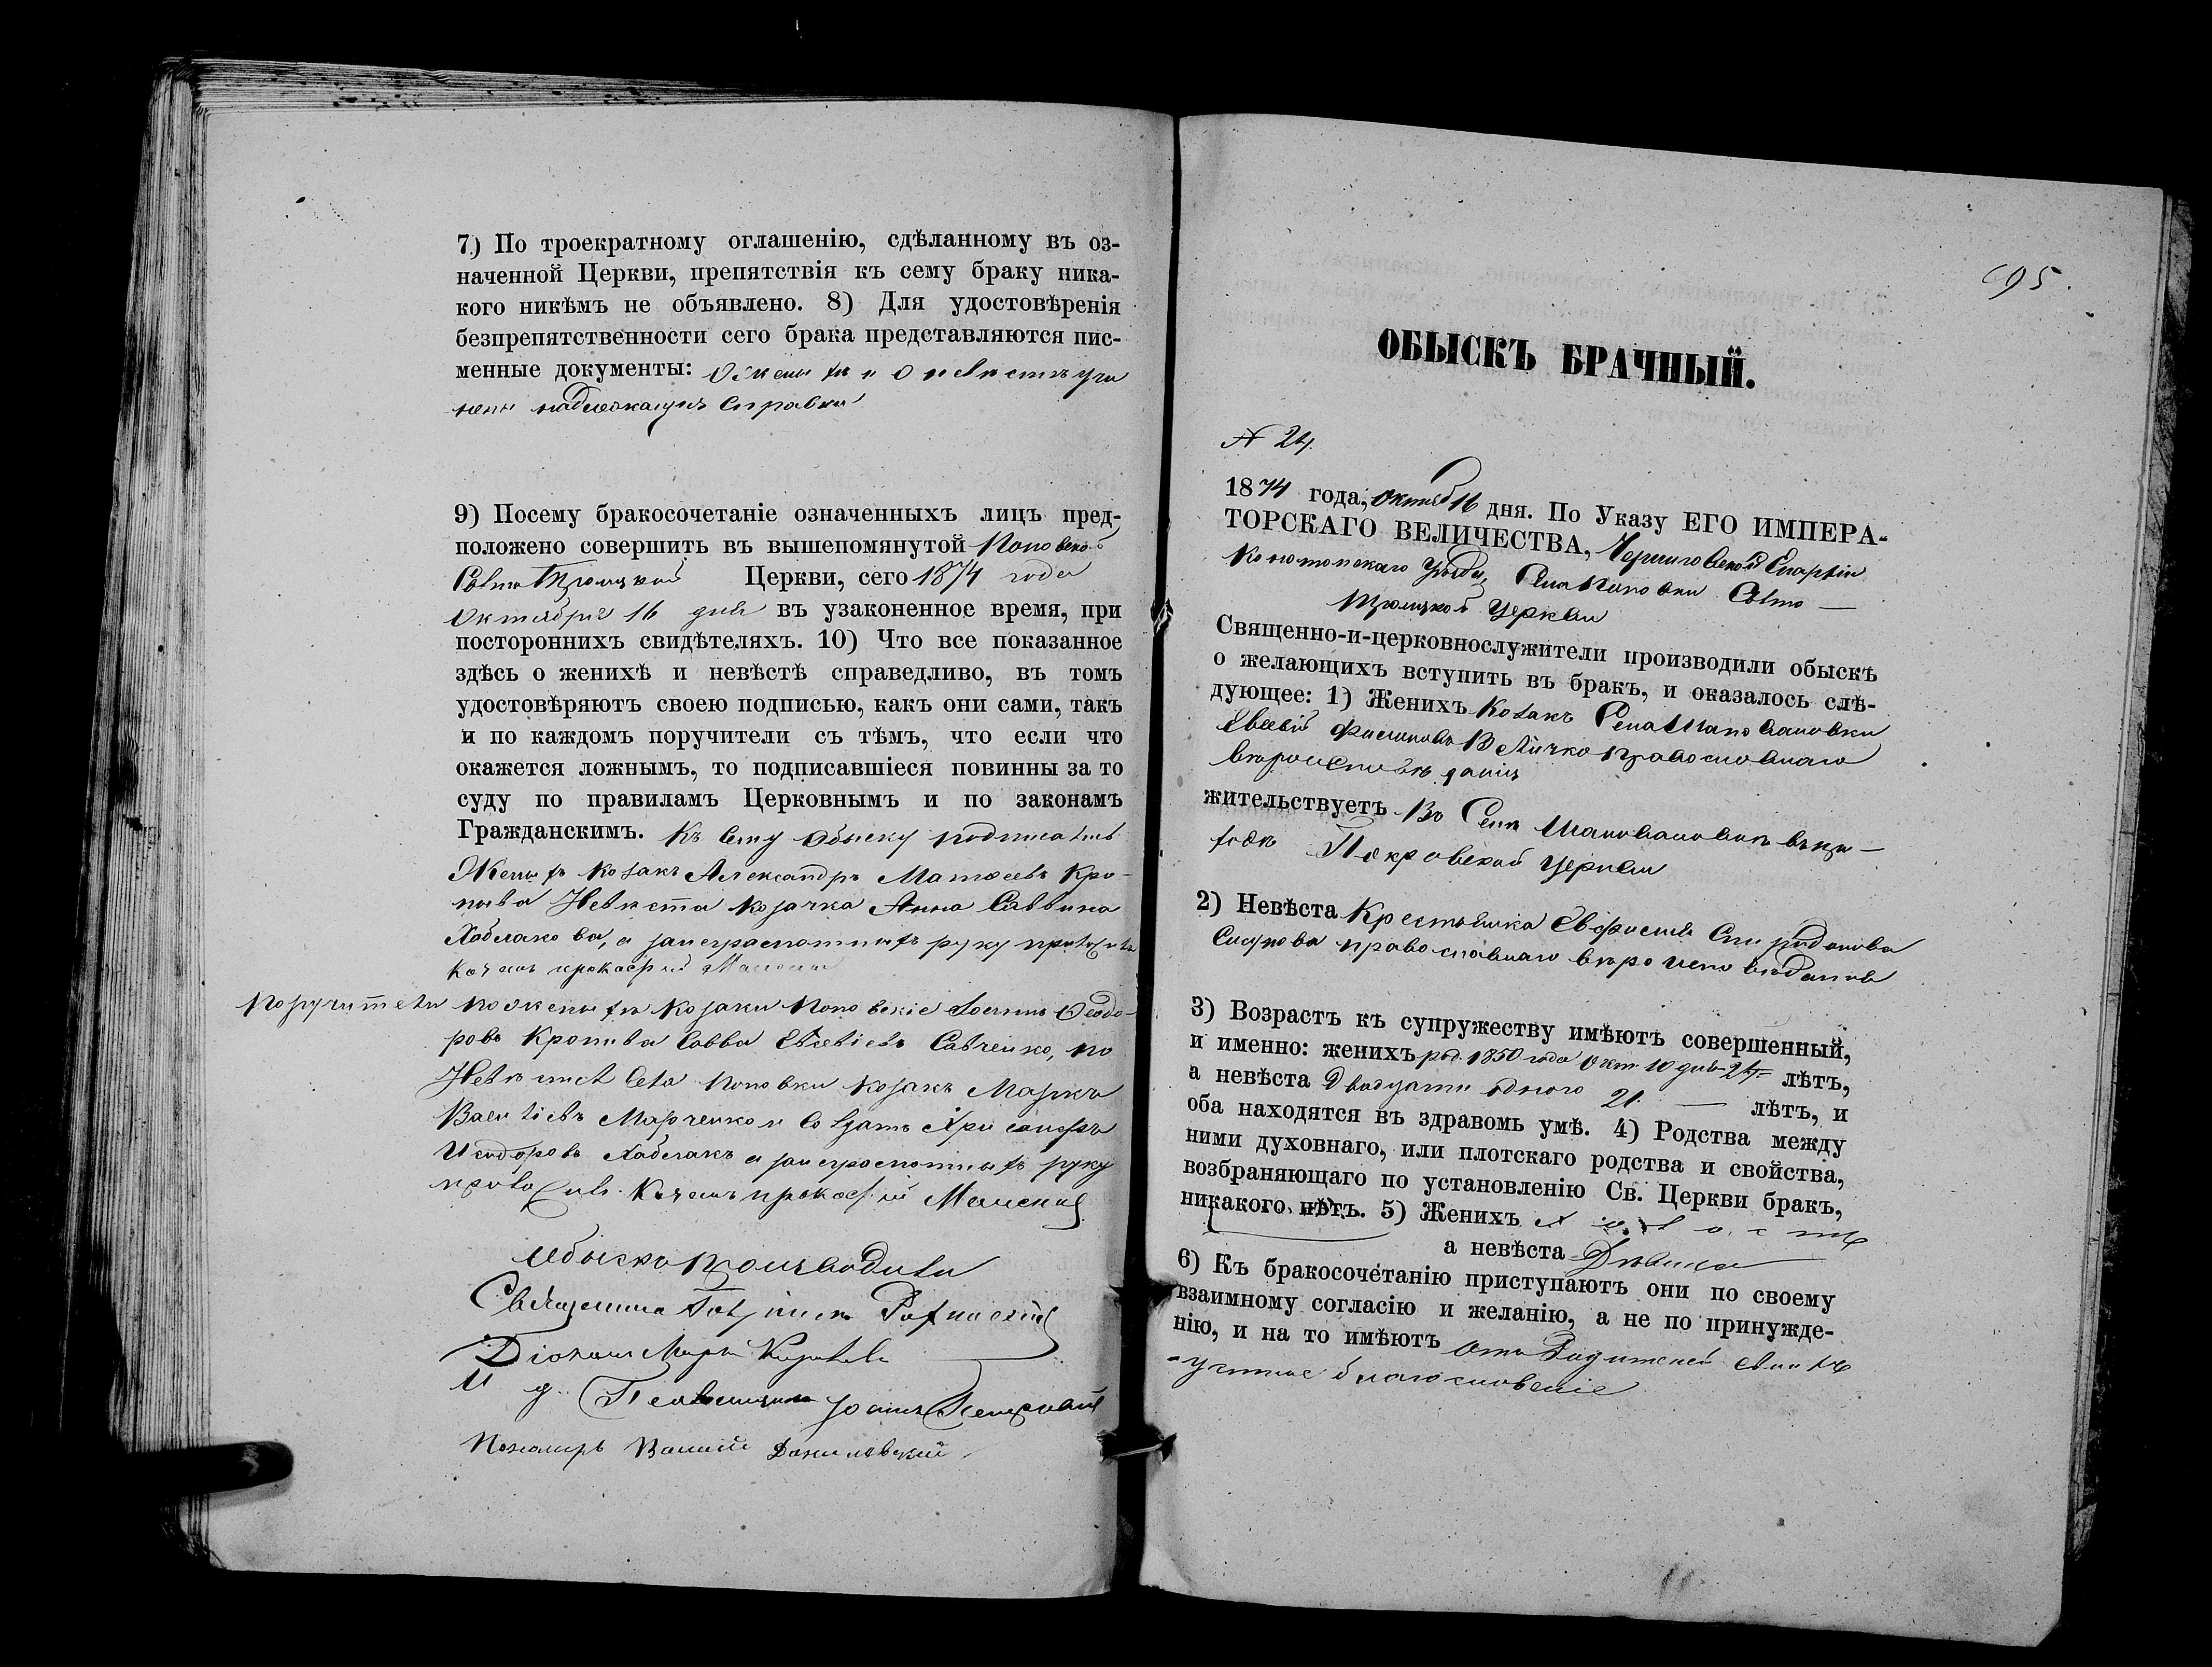 7.) По троекратному оглашенію, сдѣланному въ оз-
наченной Церкви, препятствія къ сему браку ника-
кого никѣмъ не объявлено. 8) Для удостовѣренія
безпрепятственности сего брака представляются пис-
менные документы: О женихѣ и о невѣстѣ учи
нены надлежащія справки
9) Посему бракосочетаніе означенныхъ лицъ пред-
положено совершить въ вышепомянутой Поповской
Свято Троицкой Церкви, сего 1874 года
Октября 16 дня въ узаконенное время, при
постороннихъ свидѣтеляхъ. 10) Что все показанное
здѣсь о женихѣ и невѣстѣ справедливо, въ томъ
удостовѣряютъ своею подписью, какъ они сами, такъ
и по каждомъ поручители съ тѣмъ, что если что
окажется ложнымъ, то подписавшіеся повинны за то
суду по правиламъ Церковнымъ и по законамъ
Гражданскимъ. Къ сему обыску подписались
Женихъ козакъ Александръ Матѳеевъ Кро-
пыва Невѣста козачка Анна Саввина
Хаблакова, а за неграмотныхъ руку приложилъ
Поручители по женихѣ козаки Поповскіе Ѳеодо-
ровъ Кропива Савва Евсевіевъ Савченко, по
Невѣстѣ села Поповки козакъ Марко
Васильевъ Марченко и Солдатъ Хрисанфъ
Исидоровъ Хаблакъ а за неграмотныхъ руку
приложилъ
Обыскъ производили
Священникъ
Діаконъ
И. д. Псаломщика Іоаннъ
Пономарь Василій Данилевскій
695.
ОБЫСКЪ БРАЧНЫЙ.
N 24.
1874 года, Октяб 16 дня. По Указу ЕГО ИМПЕРА-
ТОРСКАГО ВЕЛИЧЕСТВА, Черниговской Епархіи
Конотопскаго Уѣзда, Села Поповки Свято —
Троицкой Церкви
Священно-и-церковнослужители производили обыскъ
о желающихъ вступить въ бракъ, и оказалось слѣ-
дующее: 1) Женихъ Козакъ Села Шаповаловки
Евсевій Филиповъ Величко православнаго
вѣроисповѣданія
жительствуетъ Въ Селѣ Шаповаловкѣ въ при —
ходѣ Покровской Церкви
2) Невѣста Крестьянка Евфимія Спиридонова
православнаго вѣроисповѣданія
3) Возрастъ къ супружеству имѣютъ совершенный,
и именно: женихъ род. 1850 года Окт 10 дня 24 лѣтъ,
а невѣста Двадцати одного 21. — лѣтъ, и
оба находятся въ здравомъ умѣ. 4) Родства между
ними духовнаго, или плотскаго родства и свойства,
возбраняющаго по установленію Св. Церкви бракъ,
никакого нѣтъ. 5) Женихъ Холостъ
а невѣста Дѣвица
6) Къ бракосочетанію приступаютъ они по своему
взаимному согласію и желанію, а не по принужде-
нію, и на то имѣютъ отъ Родителей своихъ
устное благословеніе